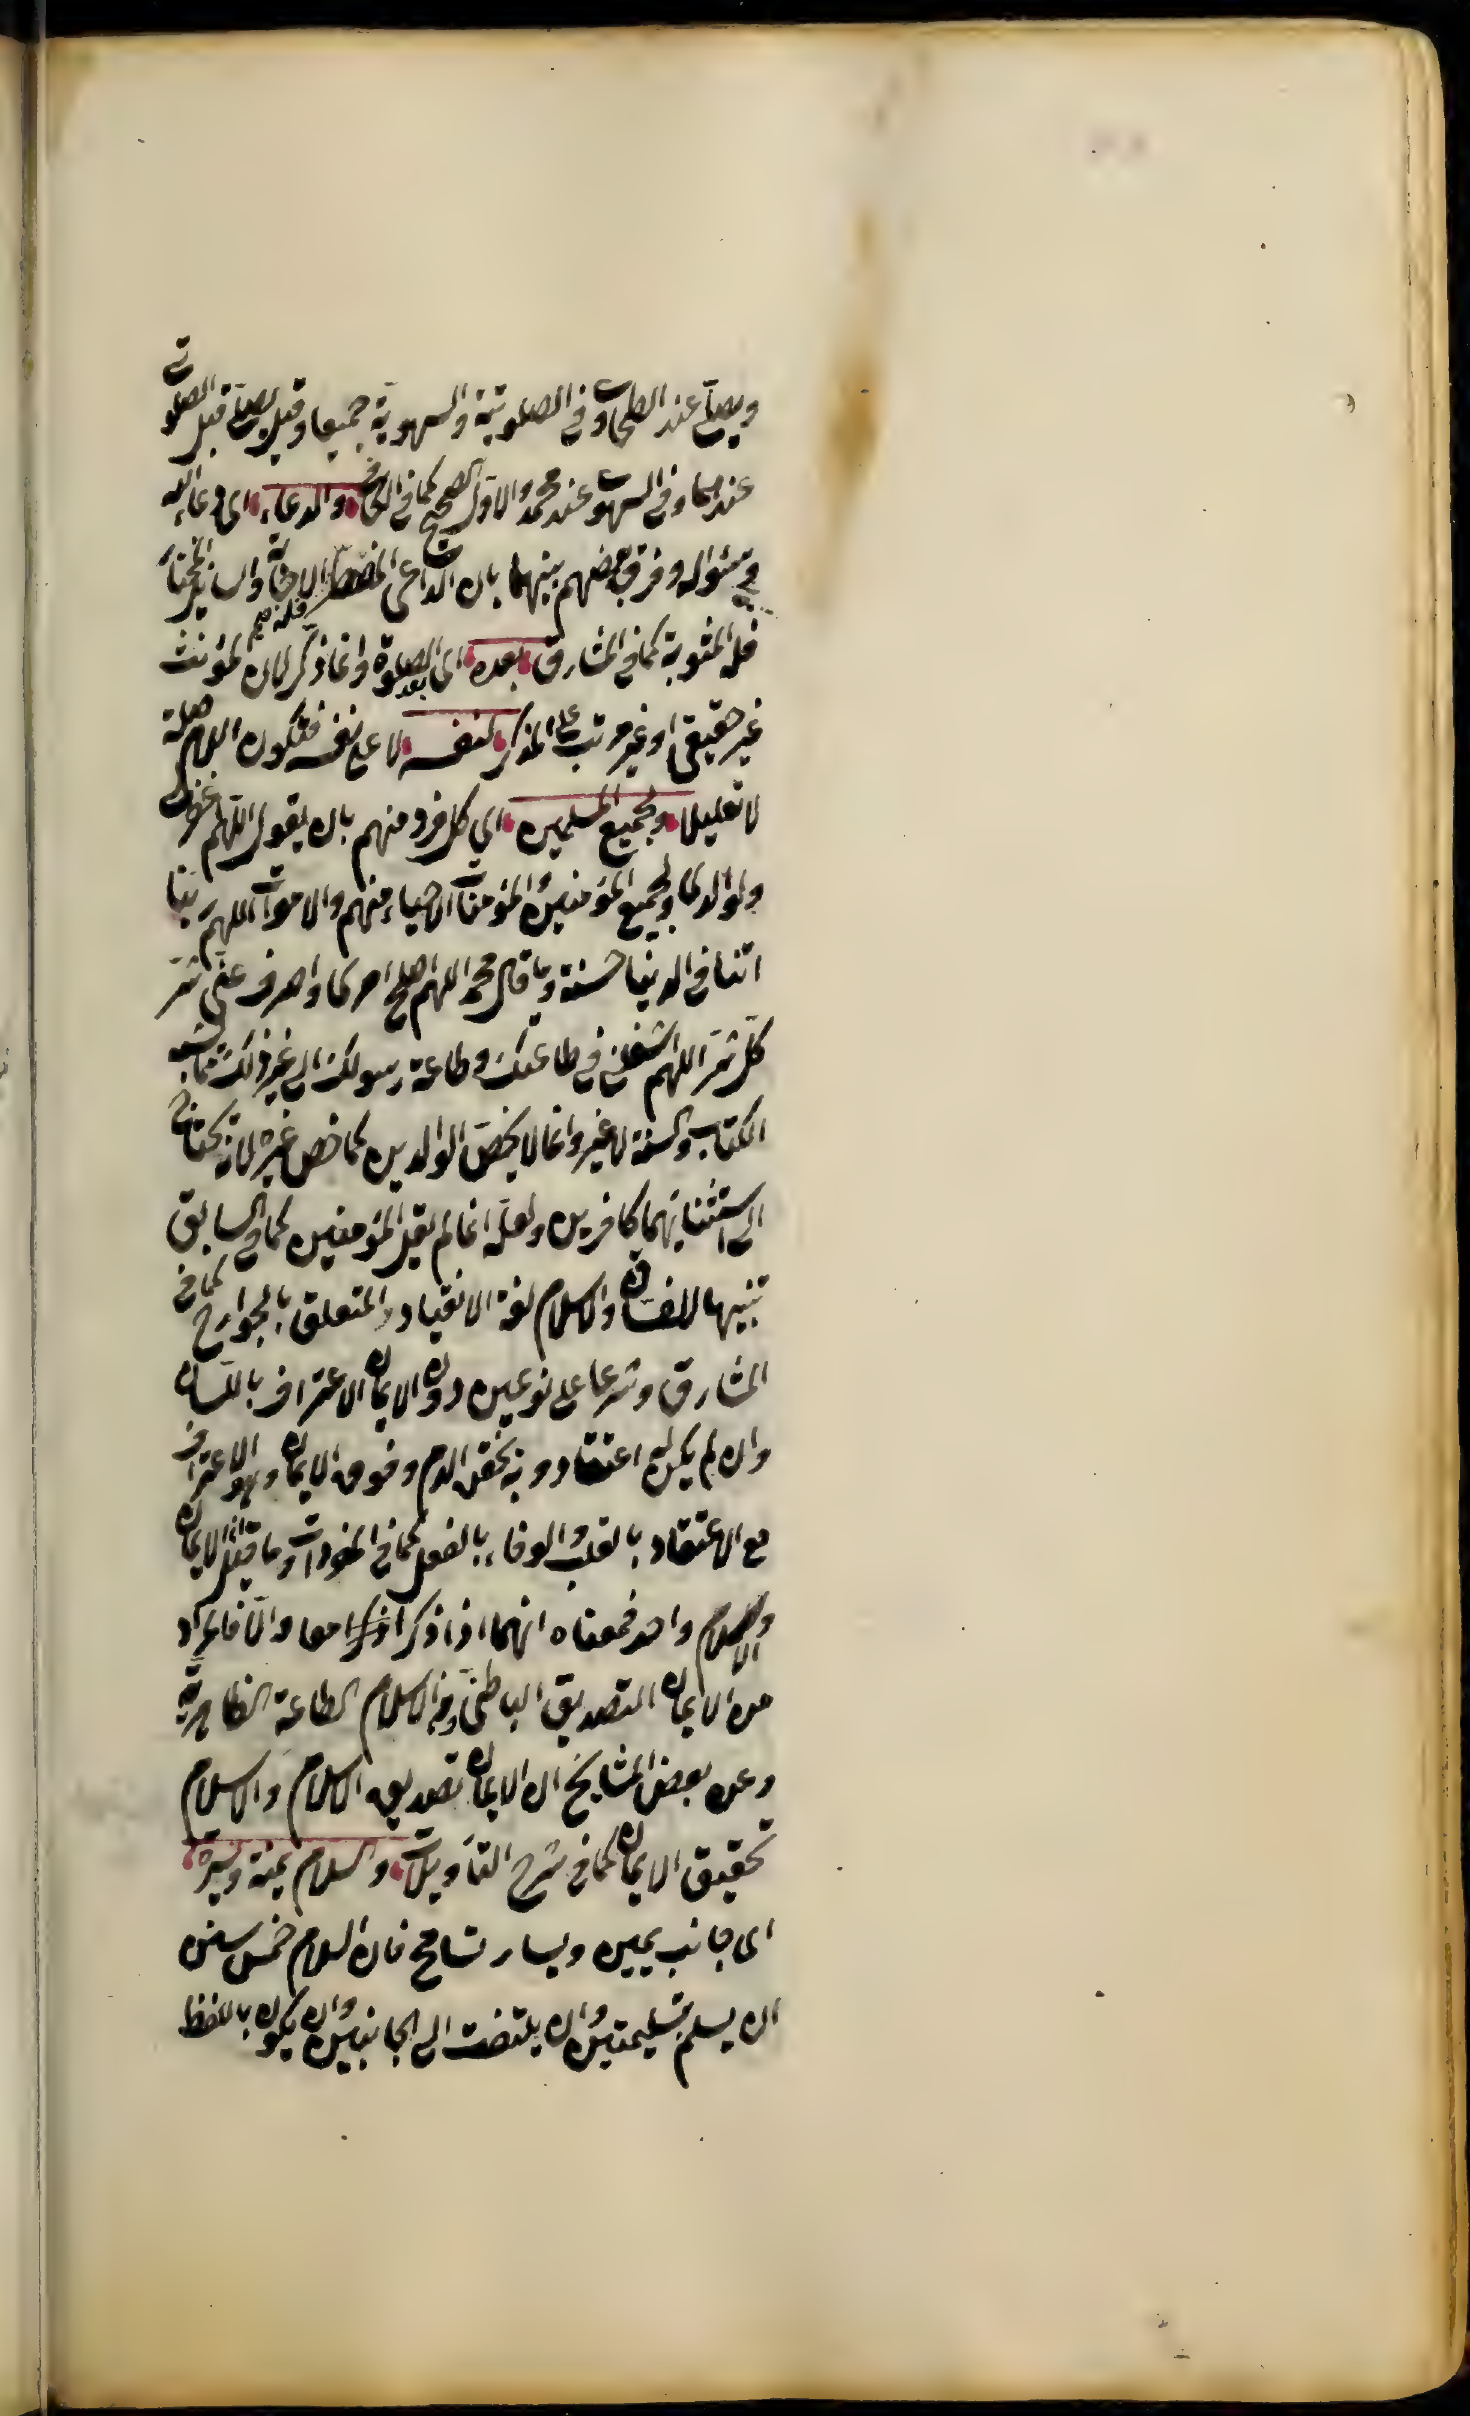 ويصلي عند الطحاوي في الصلوتية والسهوية جميعا وقيل يصلي قبل الصلوتي
عندهما وفي السهو عند محمد والاول الصحيح كما في الكافي والدعاء اى دعاء الله
وسئواله وفرق بعضهم بينهما بان الداعى المضطر فله الاجابة والسائل المختار
فله المثوبة كما في المشارق بعده اى بعد الصلوة وانما ذكر لان المؤنث
غير حقيقى او غير مرتب على المذكر لنفسه لا على نفسه فتكون اللام صلة
لا تعليلا ولجميع المسلمين اى كل فرد منهم بان يقول اللهم اغفر لى
ولوالدى ولجميع المؤمنين والمؤمنات الاحياء منهم والاموات اللهم ربنا
اتنا في الدنيا حسنة وما قال محمد اللهم اصلح امر كما واصرف عنى شر
كل شر اللهم اشغلنى في طاعتك وطاعة رسولك الى غير ذلك مما يشبه
الكتاب والسنة لا غير وانما لا يخص الوالدين كما خص غيره لانه يحتاج
الى استثنائهما كافرين ولعله انما لم يقل المؤمنين كما في السابق
تنبيها والاسلام لغة الانقياد المتعلق بالجوارح كما في
المشارق وشرعا على نوعين دون الايمان الاعتراف باللسان
وان لم يكن له اعتقاد وبه يحقن الدم وفوق الايمان وهو الاعتراف
مع الاعتقاد بالقلب والوفاء بالفعل كما في المفردات وما قيل ان الايمان
والاسلام واحد فمعناه انهما اذا ذكرا ذكرا معا والا فالمراد
من الايمان التصديق الباطنى ومن الاسلام الطاعة الظاهرية
وعن بعض المشايخ ان الايمان تصديق الاسلام والاسلام
تحقيق الايمان كما في شرح التأويلات والسلام يمنة ويسرة
اى جانب يمين ويسار تسامح فان السلام خمس سنن
ان يسلم تسليمتين وان يلتفت الى الجانبين وان يكون باللفظ